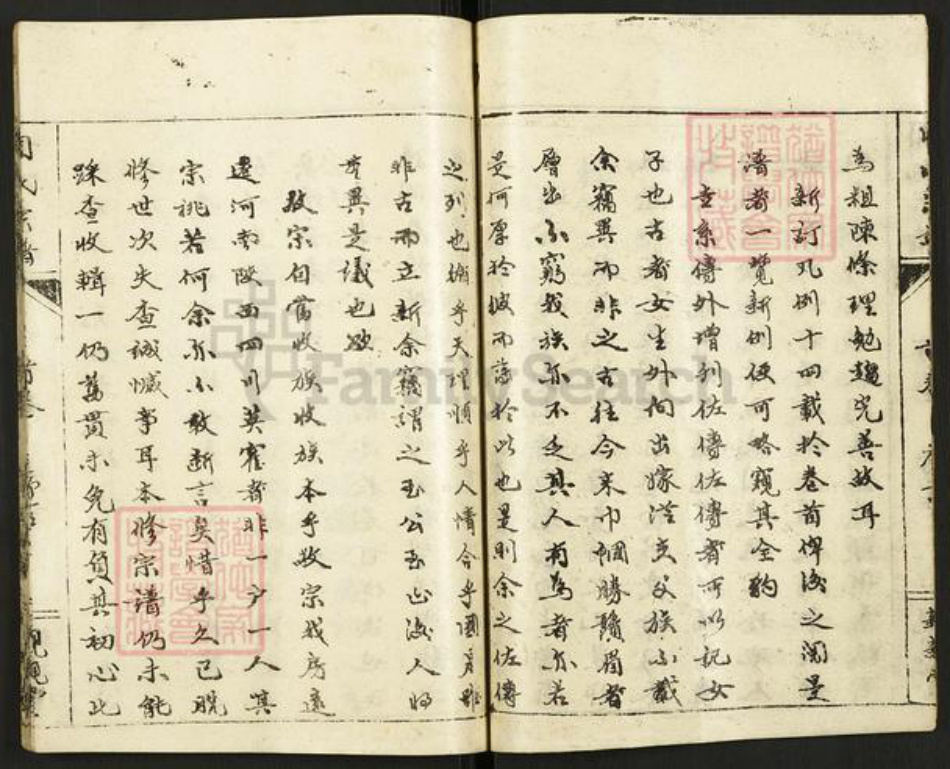 為粗陳條理勉趨完善故耳
新訂凡例十四載於卷首俾後之閱是
譜者一覽新例便可略窺其全豹
世系傳外增列佐傳佐傳者所以記女
子也古者女生外向出嫁從夫父族不載
余竊異而非之古往今來巾幗勝鬚眉者
層出不窮我族亦不乏其人有為者亦若
是何厚於彼而薄於此也是則余之佐傳
之列也順乎天理順乎人情合乎國
非古而立新余竊謂之至公至正後人將
異是議也歟
敬宗自當收族收族本乎敬宗我房遠
遷河南陝西四川英霍者非一户一人其
宗祧若何余亦不敢斷言矣惜乎久已脫
修世次失查誠憾事耳本修宗譜仍未能
踩查收輯一仍舊貫未免有負其初心此
FamilySearch